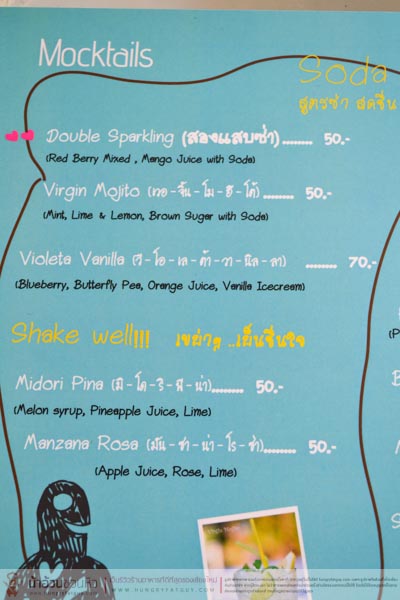 Mocktails
Soda
สูตรซ่า สดชื่น
Double Sparkling (สองแสบซ่า)........ 50.-
(Red Berry Mixed , Mango Juice with Soda)
Virgin Mojito (เวอ-จิ้น-โม-ฮิ-โต้) ........ 50.-
(Mint, Lime & Lemon, Brown Sugar with Soda)
Violeta Vanilla (วี-โอ-เล-ต้า-วา-นิล-ลา) ........ 70.-
(Blueberry, Butterfly Pea, Orange Juice, Vanilla Icecream)
Shake well!!! เขย่าๆ ..เย็นชื่นใจ
Midori Pina (มิ-โด-ริ-พี-น่า)........ 50.-
(Melon syrup, Pineapple Juice, Lime)
Manzana Rosa (มัน-ซา-น่า-โร-ซ่า)........ 50.-
(Apple Juice, Rose, Lime)
น้าอ้วนชวนหิว
WWW.HUNGRYFATGUY.COM